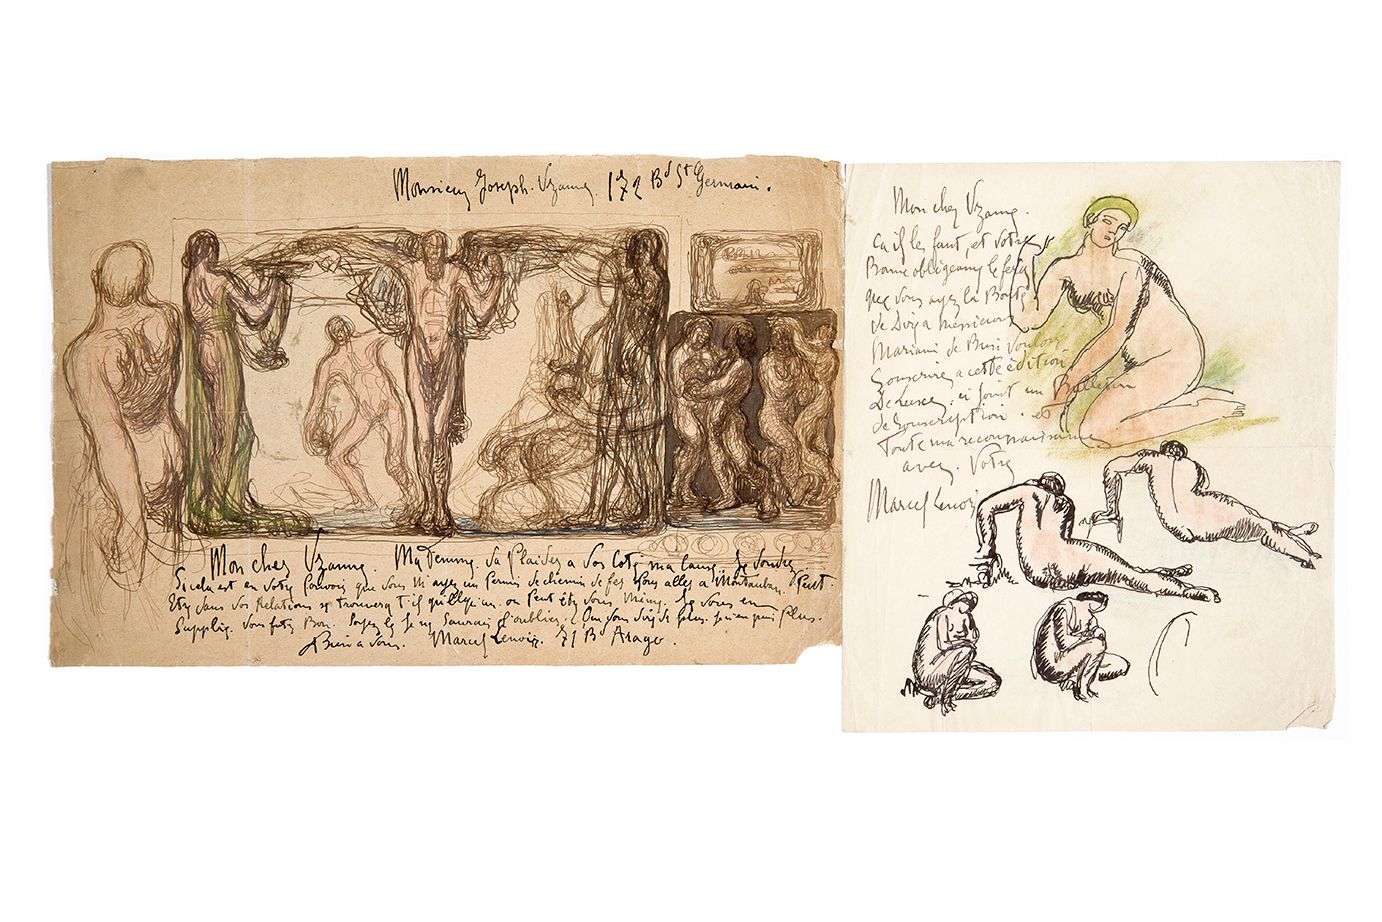 Monsieur Joseph. Uzanne. 172 Bd St Germain.
Mon cher Uzanne. Ma femme. va plaider a vos coté ma cause. Je voudrez
Si cela est en votre pouvoir que vous m'ayez un Permis de chemin de fer pour aller a Montauban. Peut
Etre dans vos Relations se trouvera t'il quelqu'un. ou Peut être vous même. Je vous en
Supplie. vous futes Bon. Soyez le je ne saurais l'oublier. Que vous dire de plus. qu'en qui plus.
Bien a vous. Marcel Lenoir. 71 Bd Arago.
Mon cher Uzanne.
Ca il le faut, et votre
Bonne obligeance le fera
que vous ayez la Bonté
de Dire a messieurs
Mariani de Bien vouloir
Souscrire a cette édition
De Luxe, ci joint un Bulletin
de souscription. et
Toute ma reconnaissance
avec. Votre
Marcel Lenoir